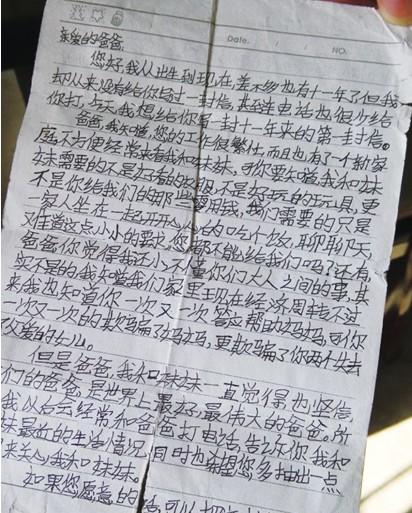 Date: / / NO.
亲爱的爸爸
您好,我从出生到现在,差不多也有十一年了但我
却从来没有给你写过一封信,甚至连电话也很少给
你打,今天,我想给你写一封十一年来的第一封信。
爸爸,我知道,您的工作很繁忙,而且也有了一个新家
庭不方便经常来看我和妹妹,可你要知道,我和妹
妹需要的不是好看的衣服,不是好玩的玩具,更
不是你给我们的那些零用钱,我们需要的只是
一家人坐在一起开开心心的吃个饭,聊聊天
难道这点小小的要求,您都不能给我们吗?还有,
爸爸你觉得我还小不懂你们大人之间的事,其
实不是的我知道我们家里现在经济周转不过
来我也知道你一次又一次答应帮助妈妈,可你
一次又一次的欺骗了妈妈,更欺骗了你两个失去
父爱的女儿。
但是爸爸,我和妹妹一直觉得也坚信
我们的爸爸,是世界上最好,最伟大的爸爸。所
我以后会经常和爸爸打电话,告诉你我和
妹最近的生活情况,同时也希望您多抽出一点
来关心我和妹妹。
如果您愿意的